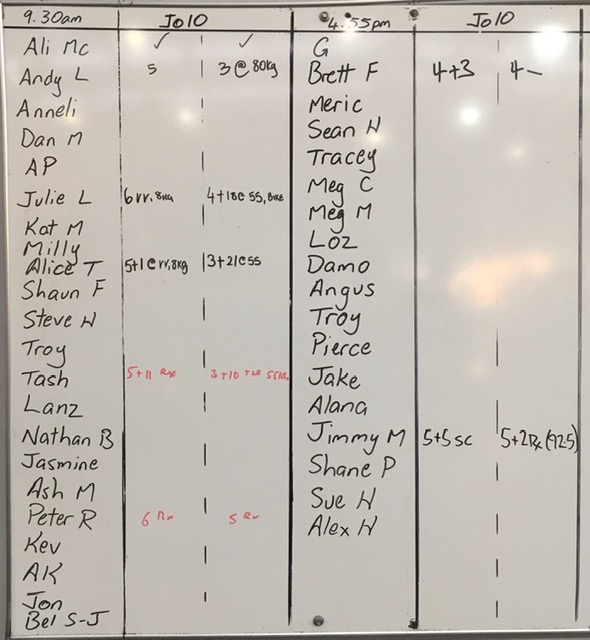 9.30am Jo10
Ali Mc ✓ ✓
Andy L 5 3@80kg
Anneli
Dan M
AP
Julie L 6 rr, 8kg 4+18c ss,
Kat M
Milly
Alice T 5+1c rr, 8kg 3+21c ss
Shaun F
Steve H
Troy
Tash 5+11 Rx 3+10
Lanz
Nathan B
Jasmine
Ash M
Peter R 6 Rx 5 Rx
Kev
AK
Jon
Bel S-J
4.55pm Jo10
G
Brett F 4+3 4 –
Meric
Sean H
Tracey
Meg C
Meg M
Loz
Damo
Angus
Troy
Pierce
Jake
Alana
Jimmy M 5+5 sc 5+2Rx (92.5)
Shane P
Sue H
Alex H